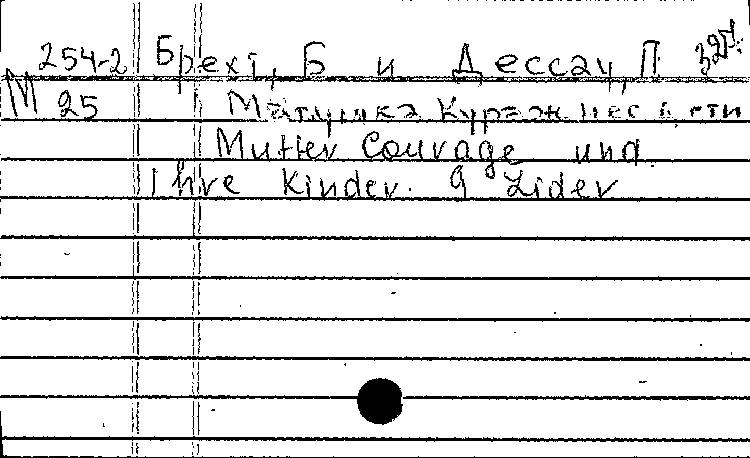 254-2 Брехт, Б и Дессау, П
М 25 Матушка Кураж
Mutter Courage und
Ihre Kinder. 9 Lider